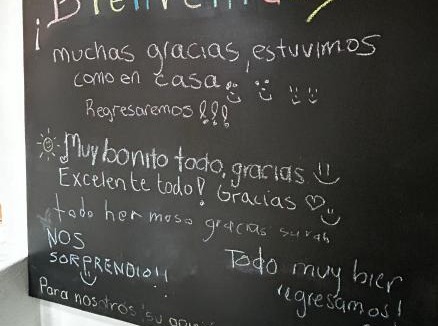 ¡
muchas gracias, estuvimos
como en casa
Regresaremos !!!
Muy bonito todo, gracias
Excelente todo! Gracias
todo hermoso gracias sarah
NOS
SORPRENDIO!!
Todo muy bien
regresamos!
Para nosotros su